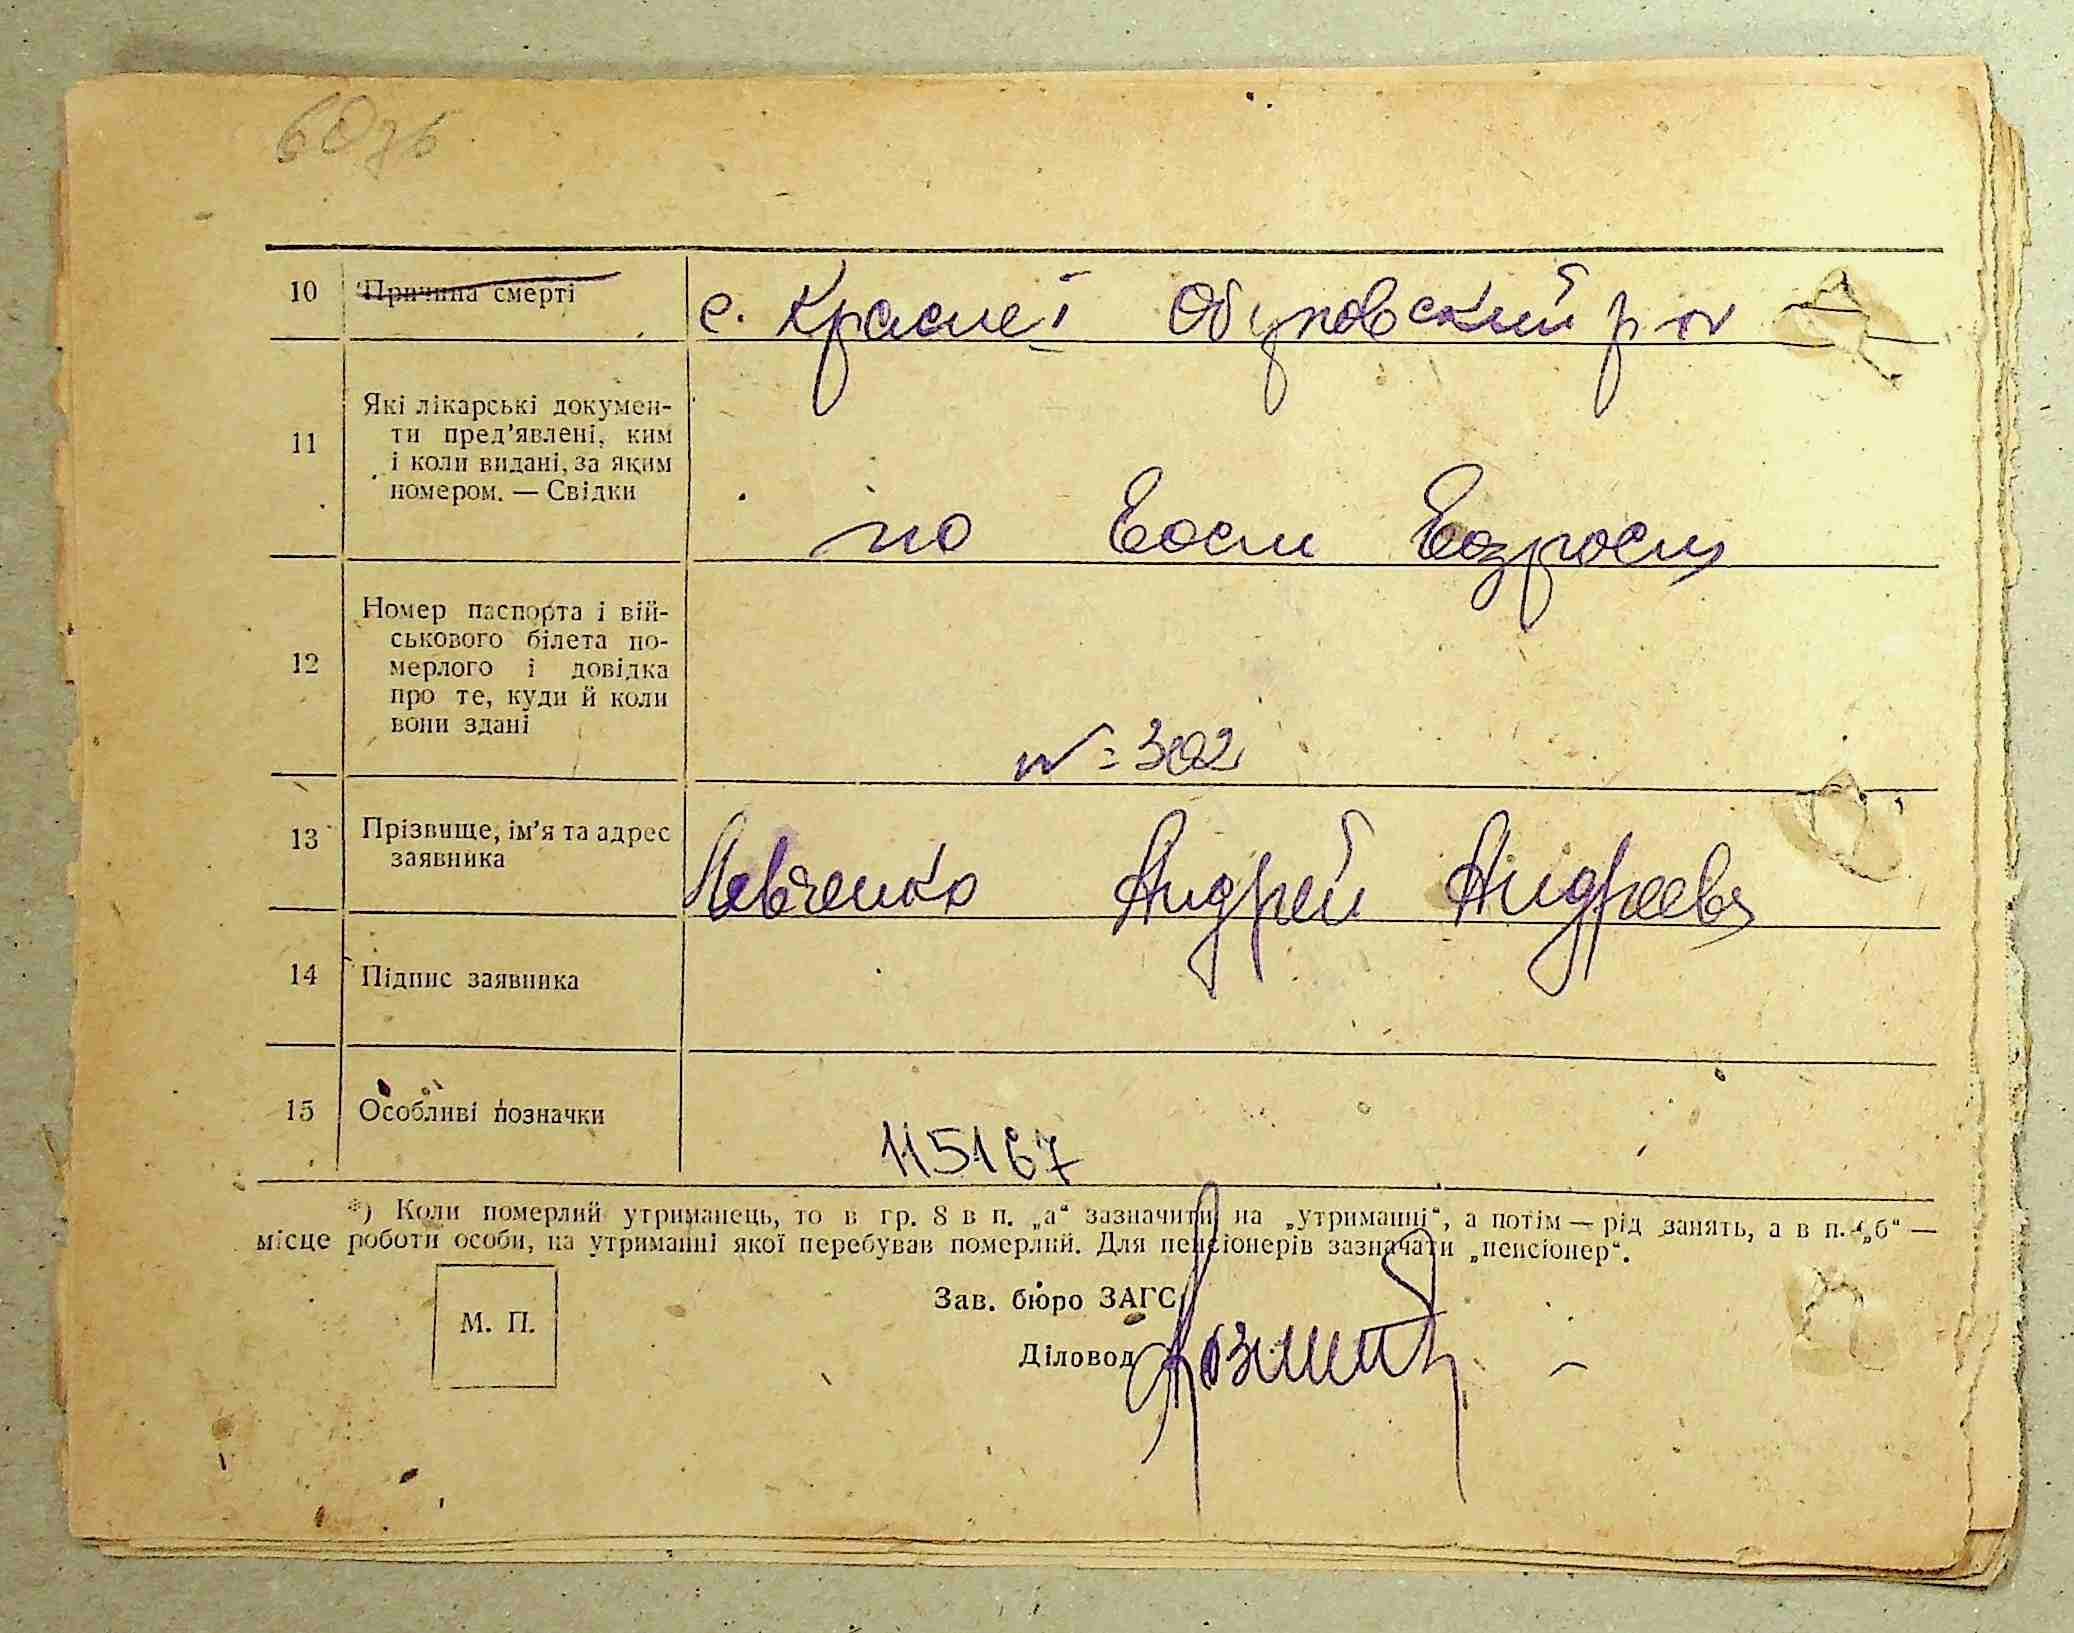 10 Причина смерті с. Красне І Обуховский р-он
11 Які лікарські докумен-
ти пред'явлені, ким
і коли видані, за яким
номером. — Свідки
по восст возрост
12 Номер паспорта і вій-
ськового білета по-
мерлого і довідка
про те, куди й коли
вони здані
№ 302
13 Прізвище, ім'я та адрес
заявника
Левченко Андрей Андреевч
14 Підпис заявника
15 Особливі позначки
115167
*) Коли померлий утриманець, то в гр. 8 в п. „а“ зазначити на „утриманні“, а потім — рід занять, а в п. „б“ —
місце роботи особи, на утриманні якої перебував померлий. Для пенсіонерів зазначати „пенсіонер“.
М. П.
Зав. бюро ЗАГС
Діловод